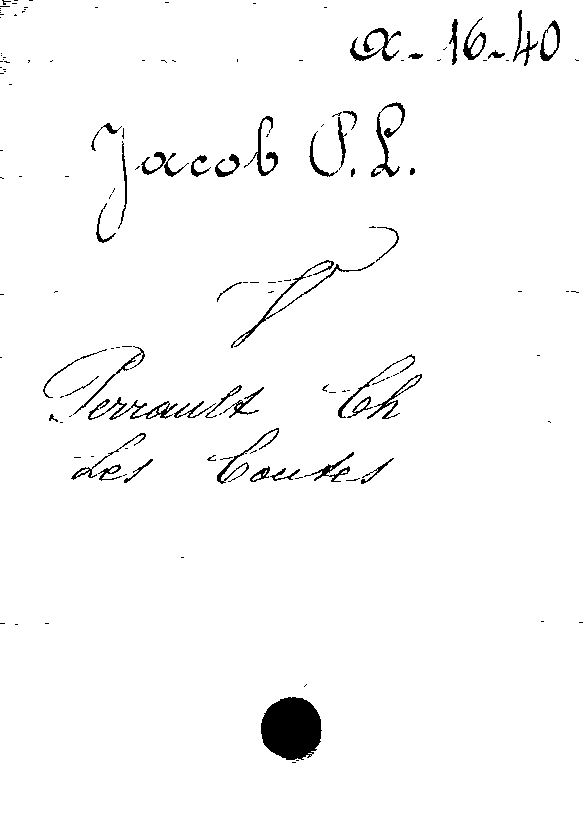 α-16-40
Jacob P. L.
V
Perrault Ch
Les Contes